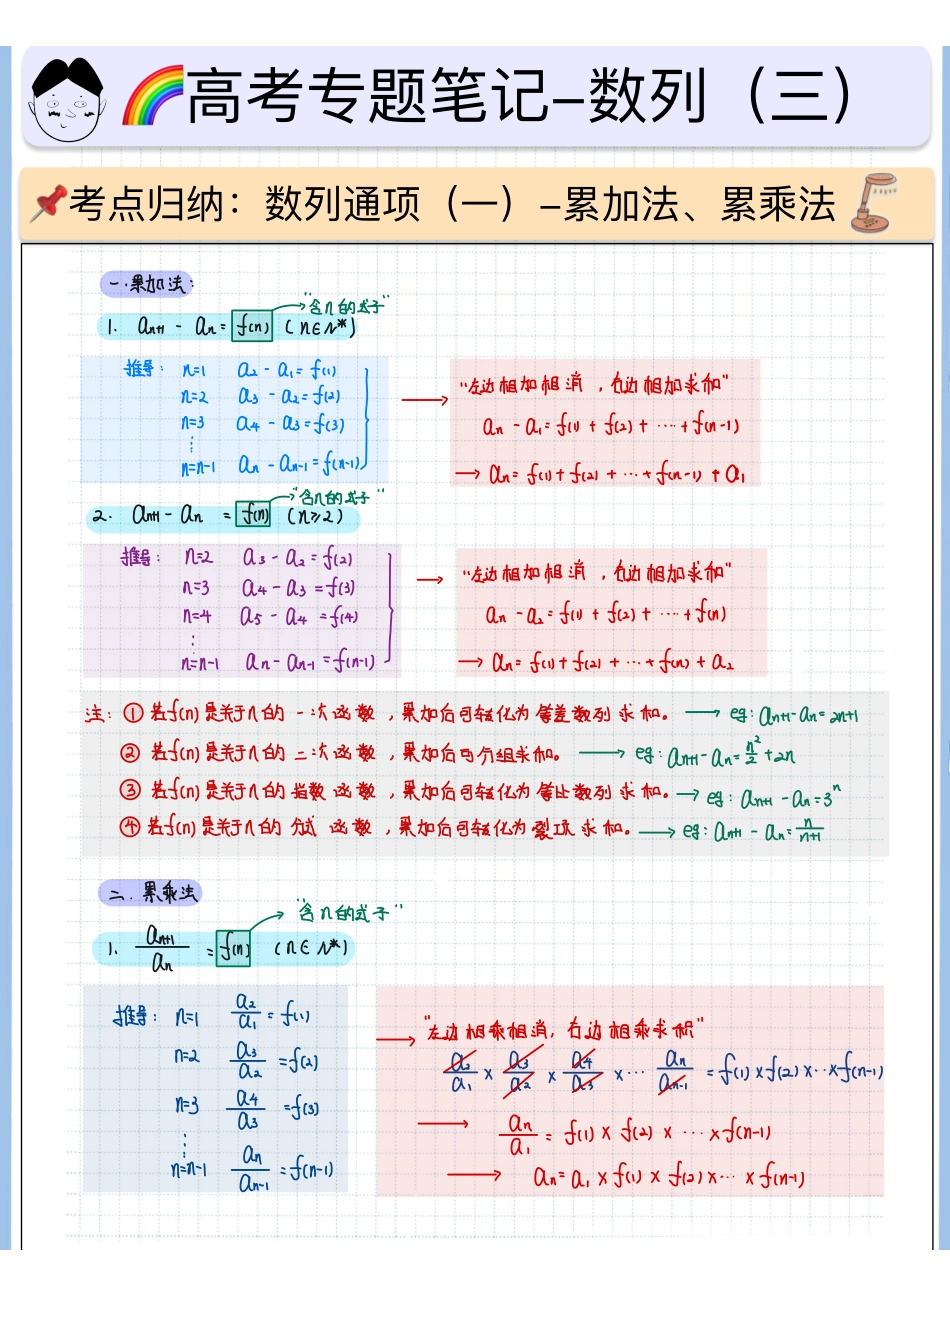 高考专题笔记-数列（三）
考点归纳：数列通项（一）-累加法、累乘法
一.累加法：
"含n的式子"
1. aₙ₊₁ - aₙ = f(n) (n∈N*)
推导： n=1 a₂ - a₁ = f(1)
n=2 a₃ - a₂ = f(2)
n=3 a₄ - a₃ = f(3)
⋮
n=n-1 aₙ - aₙ₋₁ = f(n-1)
→ "左边相加相消，右边相加求和"
aₙ - a₁ = f(1) + f(2) + ⋯ + f(n-1)
→ aₙ = f(1) + f(2) + ⋯ + f(n-1) + a₁
"含n的式子"
2. aₙ₊₁ - aₙ = f(n) (n≥2)
推导： n=2 a₃ - a₂ = f(2)
n=3 a₄ - a₃ = f(3)
n=4 a₅ - a₄ = f(4)
⋮
n=n-1 aₙ - aₙ₋₁ = f(n-1)
→ "左边相加相消，右边相加求和"
aₙ - a₂ = f(1) + f(2) + ⋯ + f(n)
→ aₙ = f(1) + f(2) + ⋯ + f(n) + a₂
注：① 若f(n)是关于n的一次函数，累加后可转化为等差数列求和。 → eg: aₙ₊₁ - aₙ = 2n+1
② 若f(n)是关于n的二次函数，累加后可分组求和。 → eg: aₙ₊₁ - aₙ = n²/2 + 2n
③ 若f(n)是关于n的指数函数，累加后可转化为等比数列求和。 → eg: aₙ₊₁ - aₙ = 3ⁿ
④ 若f(n)是关于n的分式函数，累加后可转化为裂项求和。 → eg: aₙ₊₁ - aₙ = n/(n+1)
二.累乘法
"含n的式子"
1. aₙ₊₁/aₙ = f(n) (n∈N*)
推导： n=1 a₂/a₁ = f(1)
n=2 a₃/a₂ = f(2)
n=3 a₄/a₃ = f(3)
⋮
n=n-1 aₙ/aₙ₋₁ = f(n-1)
→ "左边相乘相消，右边相乘求积"
a₂/a₁ × a₃/a₂ × a₄/a₃ × ⋯ aₙ/aₙ₋₁ = f(1) × f(2) × ⋯ × f(n-1)
→ aₙ/a₁ = f(1) × f(2) × ⋯ × f(n-1)
→ aₙ = a₁ × f(1) × f(2) × ⋯ × f(n-1)